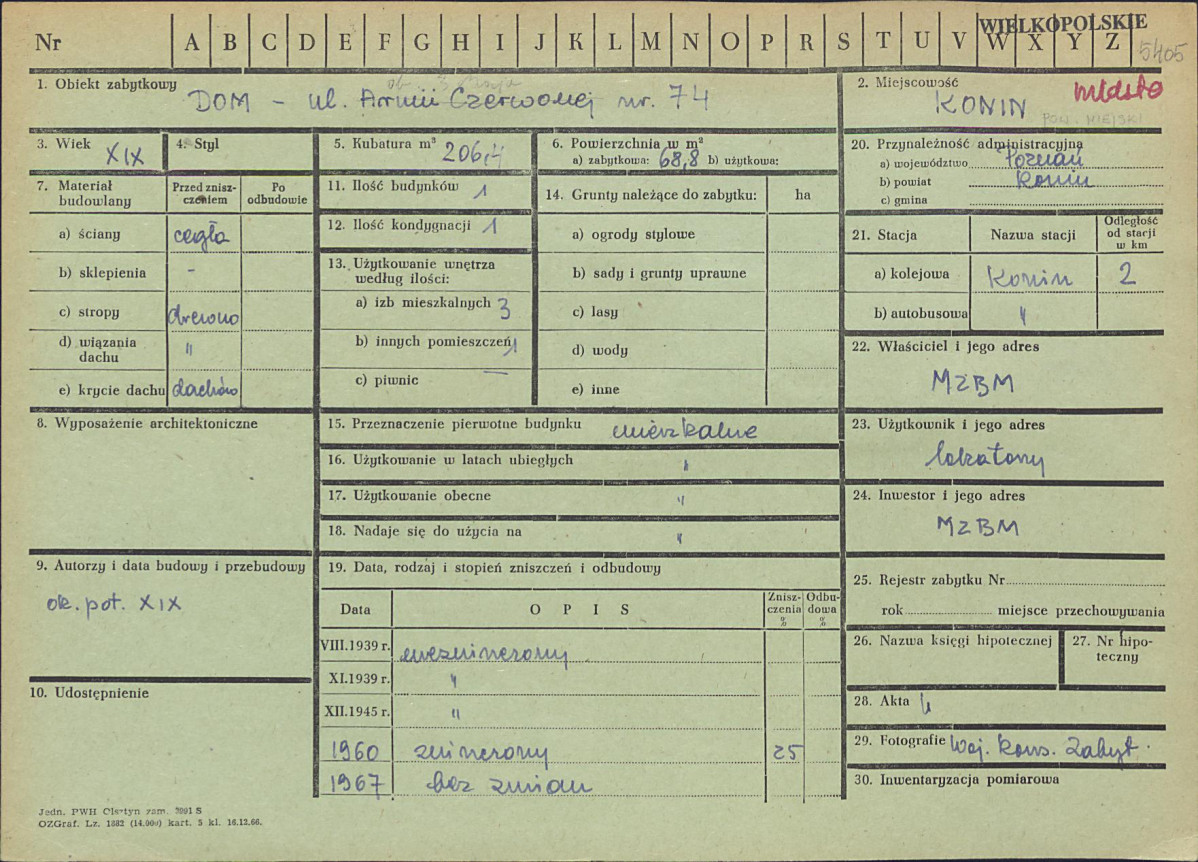 Nr A B C D E F G H I J K L M N O P R S T U V W X Y Z
WIELKOPOLSKIE
5405
1. Obiekt zabytkowy
ob. 3 Maja
DOM - ul. Armii Czerwonej nr. 74
2. Miejscowość
miasto
KONIN
POW. MIEJSKI
3. Wiek XIX
4. Styl
5. Kubatura m³ 206,4
6. Powierzchnia w m²
a) zabytkowa: 68,8 b) użytkowa:
20. Przynależność administracyjna
a) województwo Poznań
b) powiat Konin
c) gmina
7. Materiał budowlany
Przed zniszczeniem
Po odbudowie
a) ściany cegła
b) sklepienia -
c) stropy drewno
d) wiązania dachu "
e) krycie dachu dachów
11. Ilość budynków 1
12. Ilość kondygnacji 1
13. Użytkowanie wnętrza
według ilości:
a) izb mieszkalnych 3
b) innych pomieszczeń 1
c) piwnic —
14. Grunty należące do zabytku: ha
a) ogrody stylowe
b) sady i grunty uprawne
c) lasy
d) wody
e) inne
21. Stacja
Nazwa stacji
Odległość
od stacji
w km
a) kolejowa Konin 2
b) autobusowa "
22. Właściciel i jego adres
MZBM
8. Wyposażenie architektoniczne
15. Przeznaczenie pierwotne budynku mieszkalne
16. Użytkowanie w latach ubiegłych "
17. Użytkowanie obecne "
18. Nadaje się do użycia na "
23. Użytkownik i jego adres
lokatorzy
24. Inwestor i jego adres
MZBM
9. Autorzy i data budowy i przebudowy
ok. poł. XIX
10. Udostępnienie
19. Data, rodzaj i stopień zniszczeń i odbudowy
Data
O P I S
Zniszczenia %
Odbudowa %
VIII.1939 r. niezniszczony
XI.1939 r. "
XII.1945 r. "
1960 zniszczony 25
1967 bez zmian
25. Rejestr zabytku Nr
rok miejsce przechowywania
26. Nazwa księgi hipotecznej
27. Nr hipoteczny
28. Akta
29. Fotografie Woj. Kons. Zabyt.
30. Inwentaryzacja pomiarowa
Jedn. PWH Olsztyn zam. 2091 S
OZGraf. Lz. 1882 (14.000) kart. 5 kl. 16.12.66.